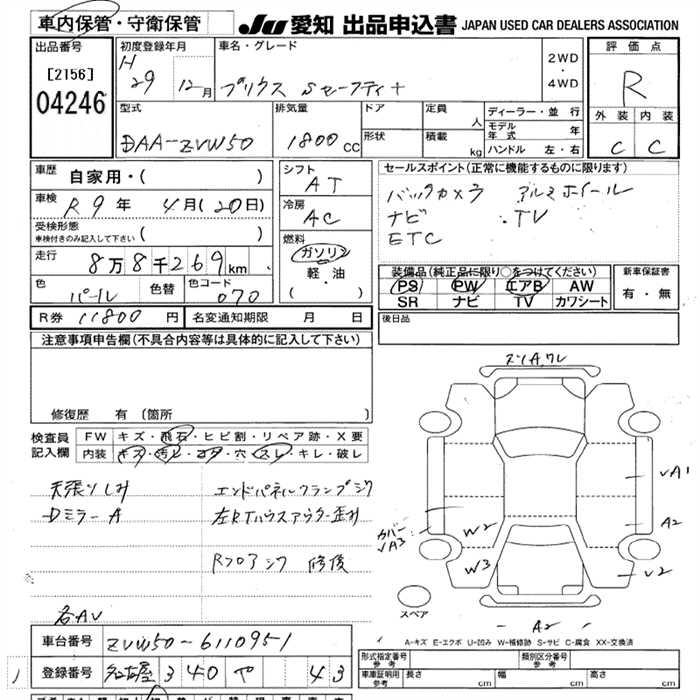 車内保管・守衛保管
JU 愛知 出品申込書 JAPAN USED CAR DEALERS ASSOCIATION
出品番号
[2156]
04246
初度登録年月
H 29 12月
車名・グレード
プリウス Sセーフティ+
2WD
・
4WD
評価点
R
外装 内装
C C
型式
DAA-ZVW50
排気量
1800cc
ドア
形状
定員 人
積載 kg
ディーラー・並行
モデル年式 年
ハンドル 左・右
車歴 自家用・( )
車検 R9年 4月(20日)
受検形態
車検付きのみ記入して下さい ( )
走行 8万8千269km
色 パール 色替 色コード 070
シフト
AT
冷房
AC
燃料
ガソリン
軽・油
( ・ )
セールスポイント(正常に機能するものに限ります)
バックカメラ アルミホイール
ナビ ・TV
ETC
装備品(純正品に限り○をつけてください)
PS PW エアB AW
SR ナビ TV カワシート
新車保証書
有・無
R券 11800円 名変通知期限 月 日
後日品
注意事項申告欄(不具合内容等は具体的に記入して下さい)
修復歴 有(箇所 )
検査員
記入欄
FW キズ・飛石・ヒビ割・リペア跡・X要
内装 キズ・汚レ・コゲ・穴・スレ・キレ・破レ
天張りしみ
Dミラー A
エンドパネルクランプジワ
左RTハウスアウター歪み
Rフロアジワ 修後
各AV
ズリA,ワレ
カバー
√A3
W2
W3
√A1
A2
√2
A2
スペア
A-キズ E-エクボ U-凹み W-補修跡 S-サビ C-腐食 XX-交換済
車台番号 ZVW50-6110951
登録番号 名古屋 340 や 43
形式指定番号
参考
類別区分番号
参考
車庫証明用
参考
長さ cm 幅 cm 高さ cm